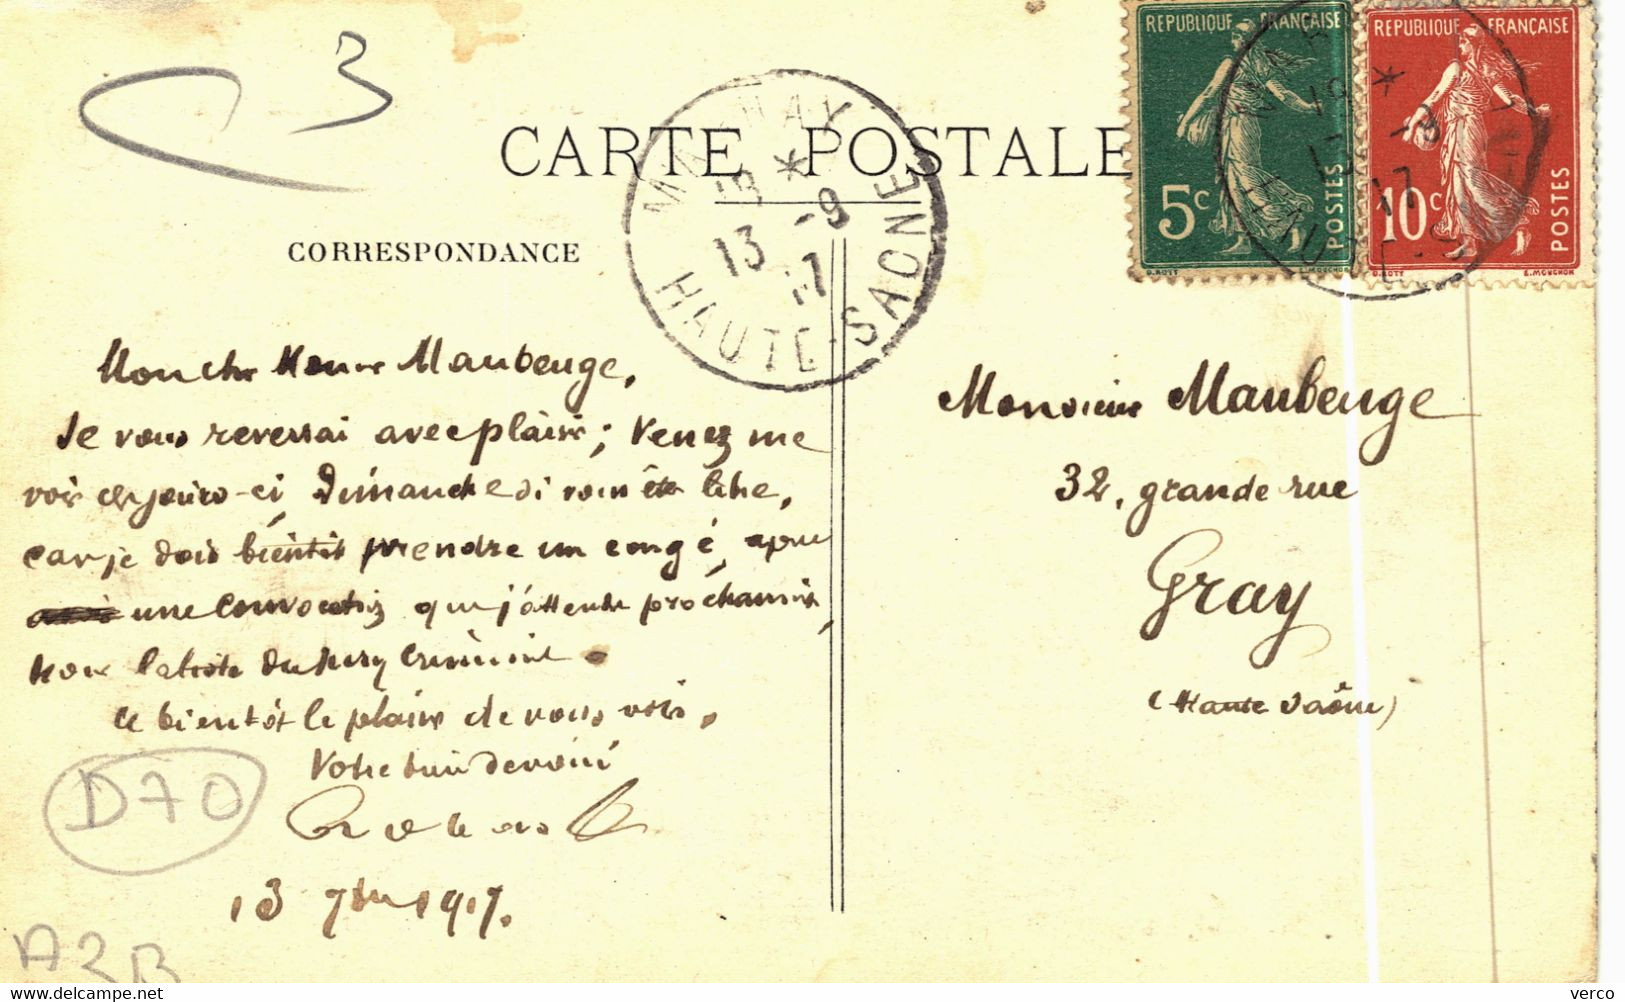 3
REPUBLIQUE FRANÇAISE
5c
POSTES
O. ROTY
E. MOUCHON
REPUBLIQUE FRANÇAISE
10c
POSTES
O. ROTY
E. MOUCHON
CARTE POSTALE
HAUTE-SAONE
13 * -9
13 17
CORRESPONDANCE
Mon cher Maubeuge,
Je vous reverrai avec plaisir; Venez me
voir ces jours-ci, Dimanche si vous êtes libre,
car je dois bientôt prendre un congé, après
une convocation que j'attends prochainement,
pour la liste du Jury Criminel.
à bientôt le plaisir de vous voir.
Votre bien dévoué
13 7bre 1917.
Monsieur Maubeuge
32, grande rue
Gray
(Haute Saône)
D70
A2B
verco